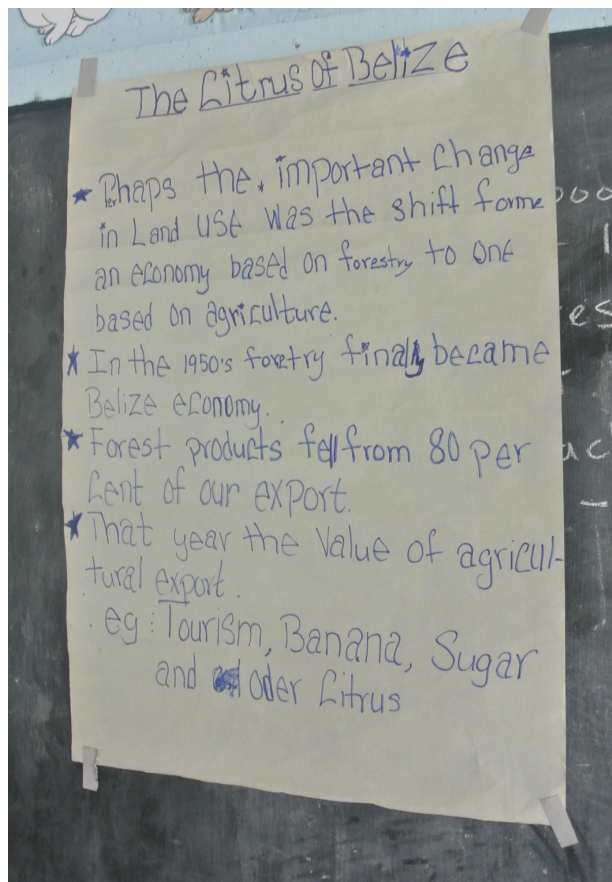 The Citrus Of Belize
★ Perhaps the. important change
in Land use was the shift forme
an economy based on forestry to one
based on agriculture.
★ In the 1950's foretry finally became
Belize economy.
★ Forest products fell from 80 per
cent of our export.
★ That year the value of agricul-
tural export.
. eg: Tourism, Banana, Sugar
and oder Citrus